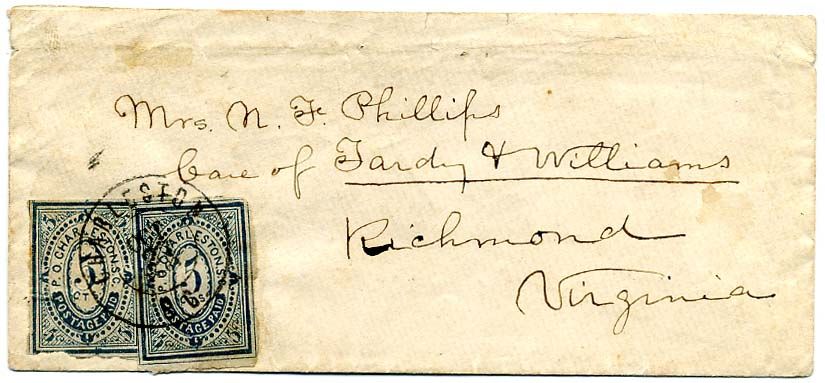 Mrs. N. F. Phillips
Care of Tardy & Williams
Richmond
Virginia
CHARLESTON
P.O. CHARLESTON, S.C.
5
CTS
POSTAGE PAID
P.O. CHARLESTON, S.C.
5
CTS
POSTAGE PAID